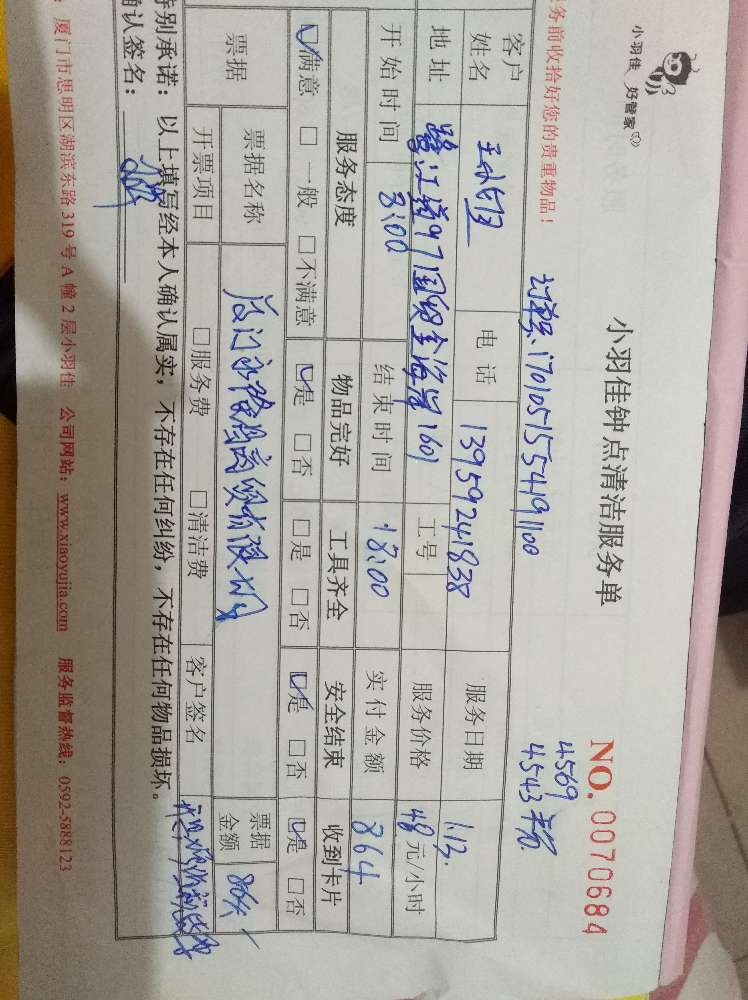 小羽佳 好管家
小羽佳钟点清洁服务单
NO. 0070684
4569
4543
1701051554191100
务前收拾好您的贵重物品!
客户姓名 电话 13959241838 服务日期 1.12.
地址 鹭江道97国际金海岸1601 工号 服务价格 48 元/小时
开始时间 8:00 结束时间 18:00 实付金额 864
服务态度 物品完好 工具齐全 安全结束 收到卡片
☑满意 □一般 □不满意 ☑是 □否 □是 □否 ☑是 □否 ☑是 □否
票据 票据名称 票据金额 864
开票项目 □服务费 □清洁费 客户签名
特别承诺:以上填写经本人确认属实,不存在任何纠纷,不存在任何物品损坏。
确认签名:
:厦门市思明区湖滨东路 319 号 A 幢 2 层小羽佳 公司网站:www.xiaoyujia.com 服务监督热线:0592-5888123